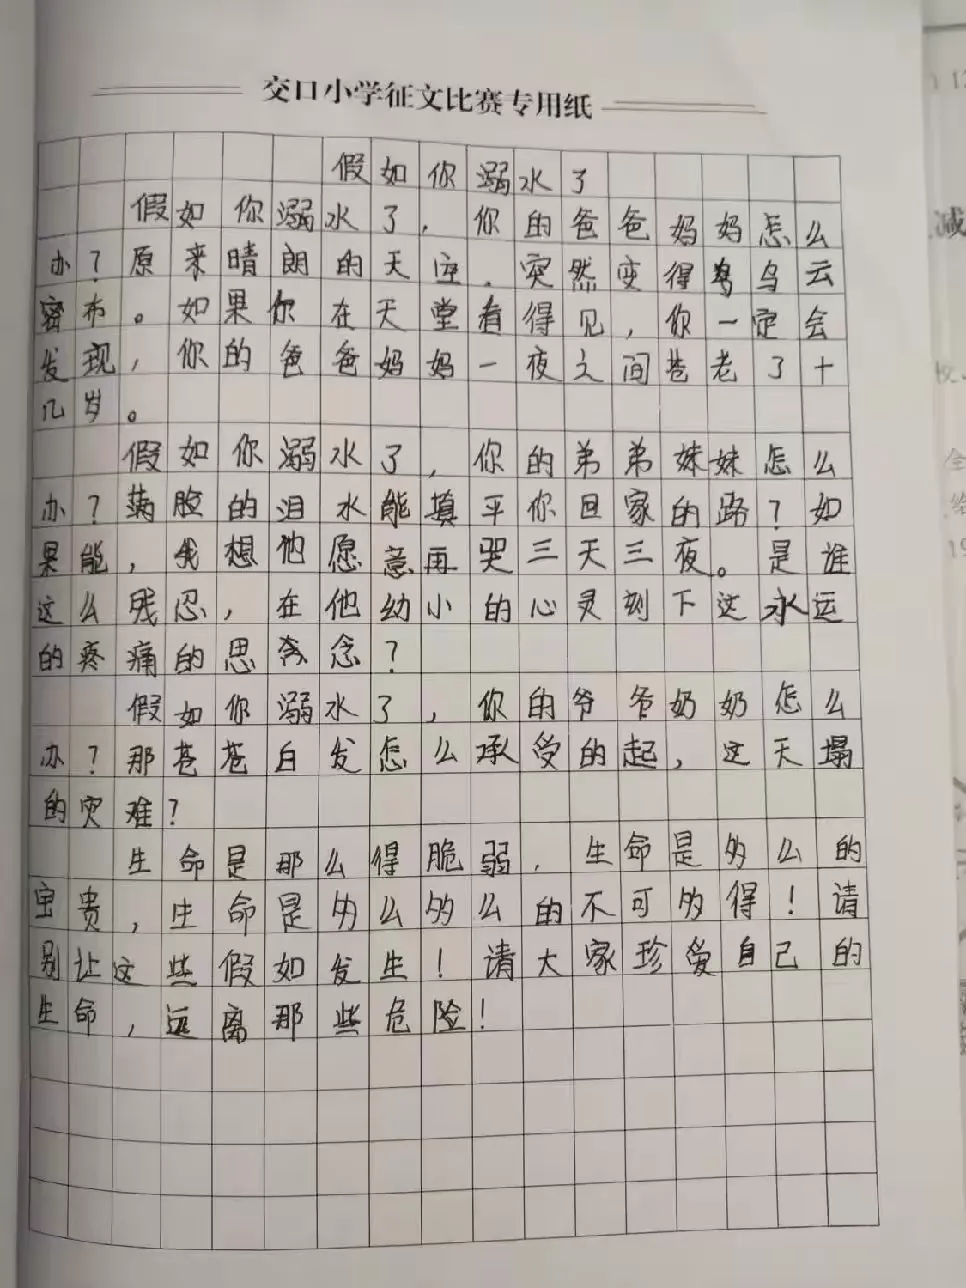 交口小学征文比赛专用纸
假如你溺水了
假如你溺水了，你的爸爸妈妈怎么
办？原来晴朗的天空，突然变得乌乌云
密布。如果你在天堂看得见，你一定会
发现，你的爸爸妈妈一夜之间苍老了十
几岁。
假如你溺水了，你的弟弟妹妹怎么
办？满脸的泪水能填平你回家的路？如
果能，我想他愿意再哭三天三夜。是谁
这么残忍，在他幼小的心灵刻下这永远
的疼痛的思念念？
假如你溺水了，你的爷爷奶奶怎么
办？那苍苍白发怎么承受的起，这天塌
的灾难？
生命是那么得脆弱，生命是多么的
宝贵，生命是多么多么的不可多得！请
别让这些假如发生！请大家珍爱自己的
生命，远离那些危险！
减